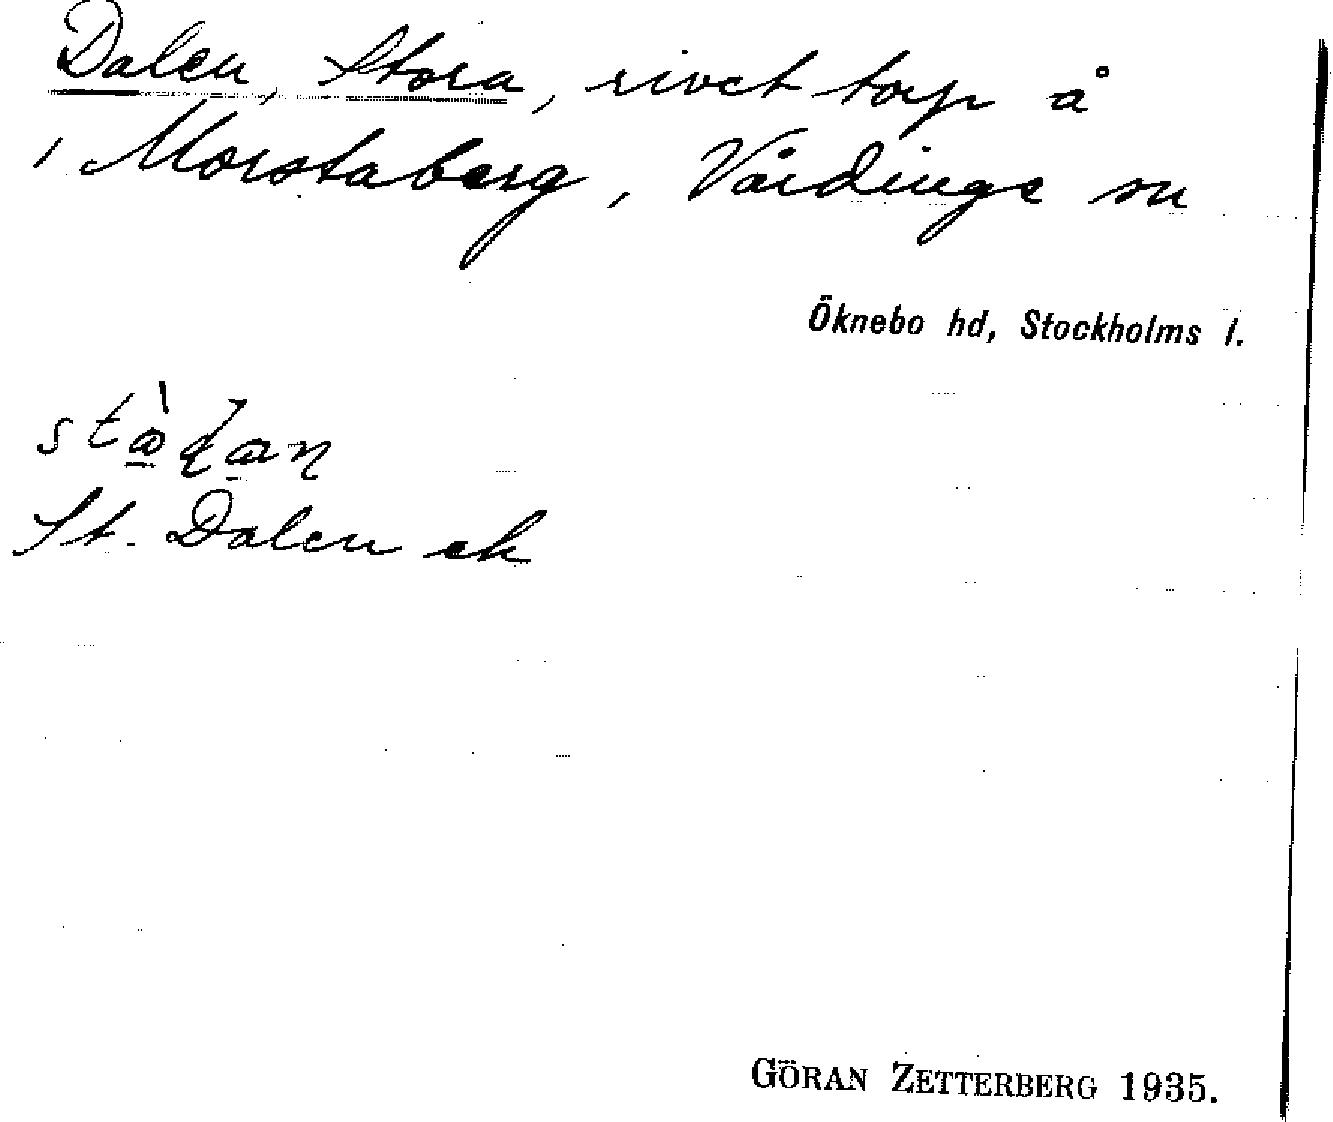 Dalen, Stora, rivet torp å
Morstaberg, Vårdinge sn
Öknebo hd, Stockholms l.
St. Dalen ek
GÖRAN ZETTERBERG 1935.